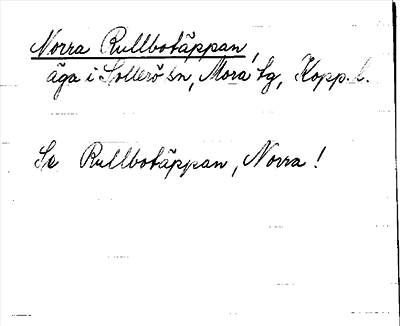 Norra Rullbotäppan,
äga i Sollerö sn, Mora tg, Kopp. l.
Se Rullbotäppan, Norra!